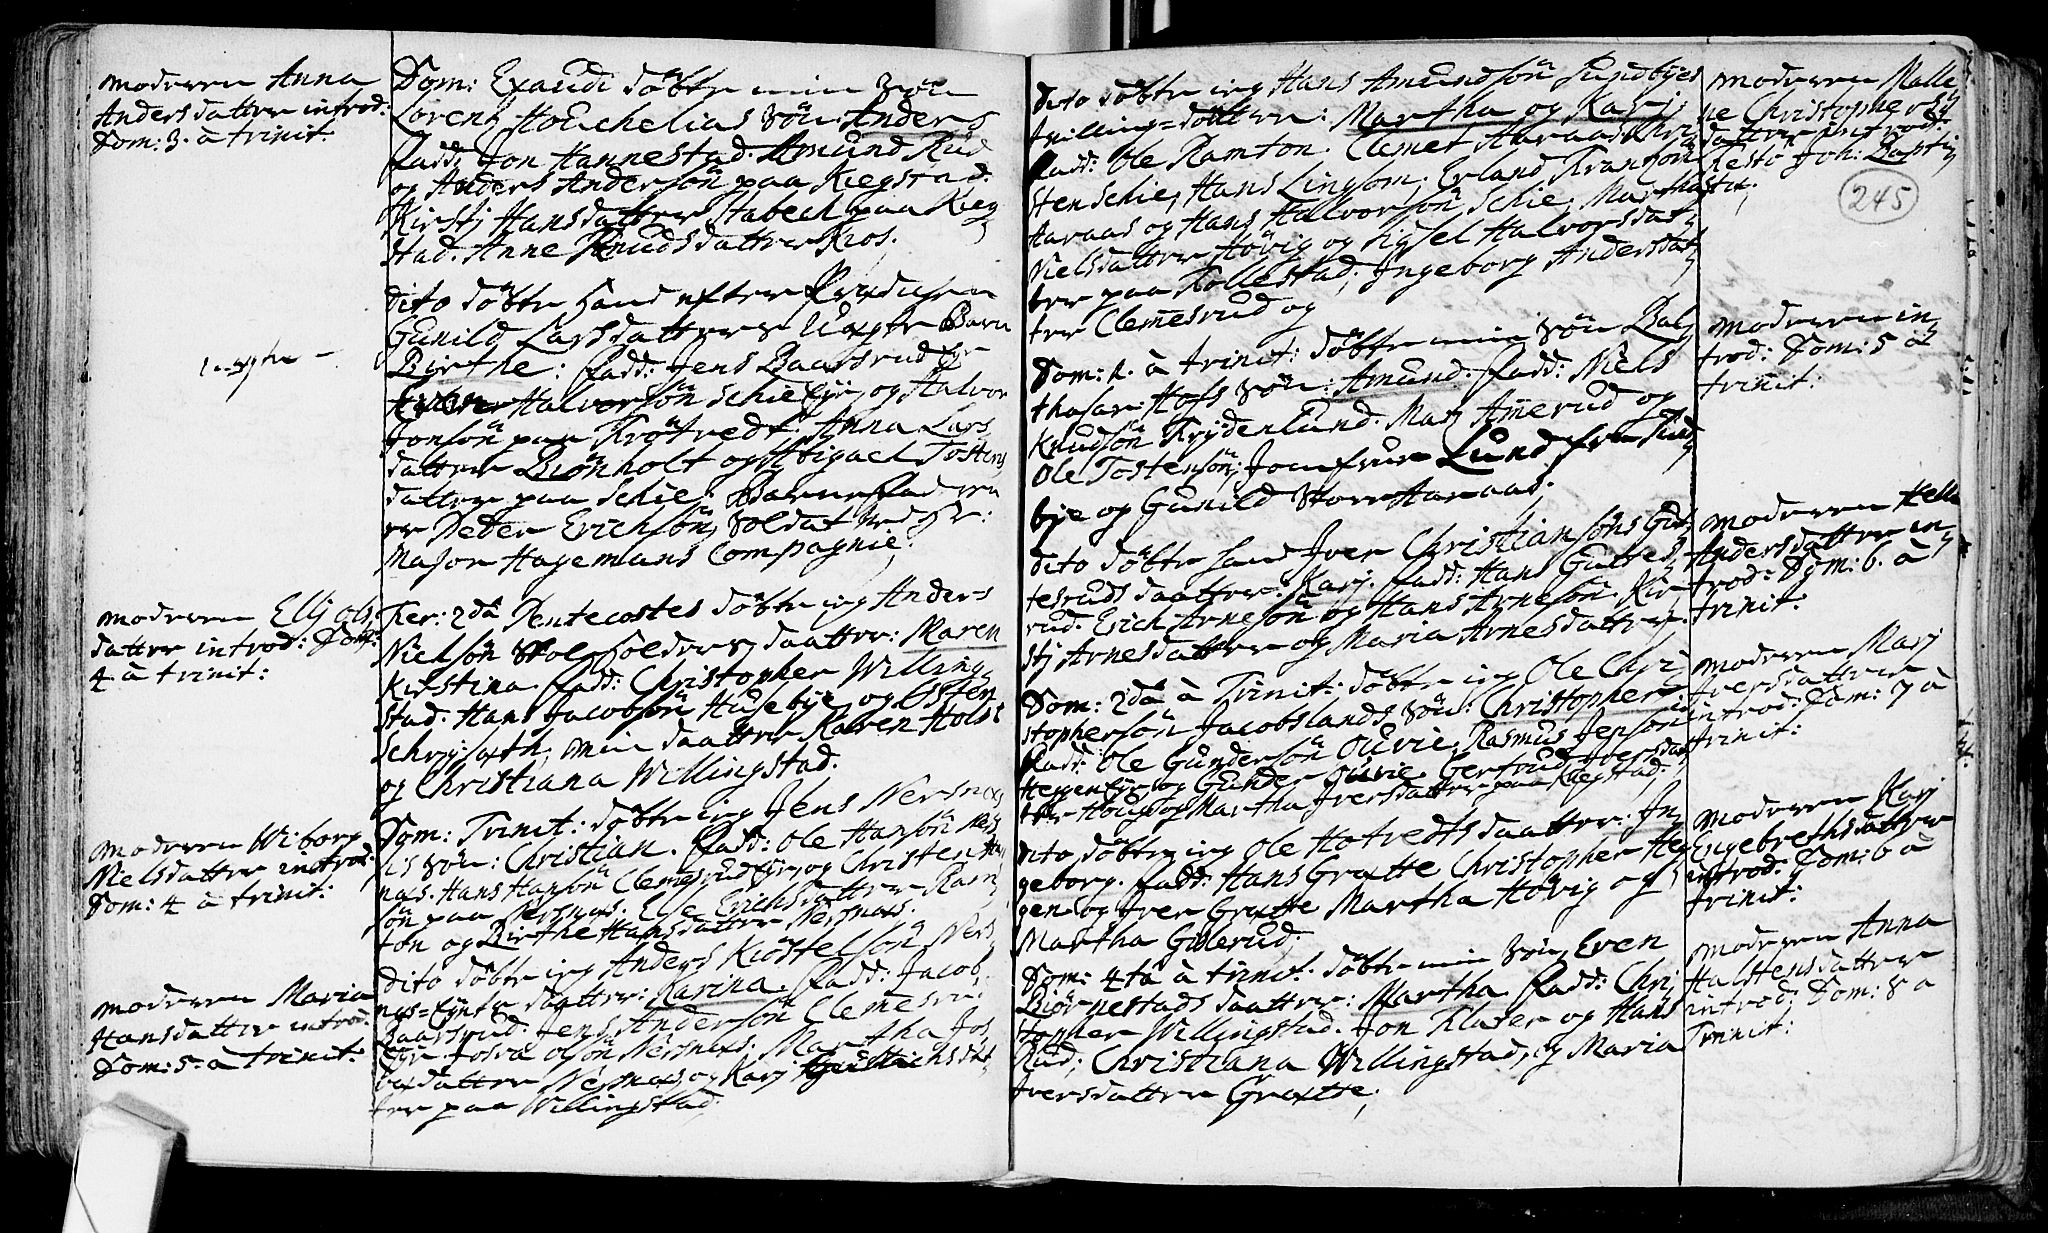 moderen Anna
Andersdatter introd:
Dom: 3. à trinit.
uægte -
moderen Ellj Ols
datter introd: Dom:
4 à trinit:
moderen Wiborg
Nielsdatter introd:
Dom: 4 à trinit:
moderen Maria
Hansdatter introd:
Dom: 5. à trinit:
Dom: Exaudi döbte min Sön
Lorentz Sön: Anders
fadd: Jon Hannestad. Amund Rud
og Anders Andersön paa Kiegstad.
Kirstj Hansdatter Stabech paa Kieg
stad. Anne Knudsdatter Kros.
dito döbte hand efter
Gunild Larsdatters Uægte Barn
Birthe: fadd: Jens Baarsrud
Halvorsön Schie og Halvor
Jonsön paa Trötvedt. Anna Lars
datter Biönholt og Abigael Tostens
datter paa Schie. Barnefaderen
er Peder Erichsön, Soldat ved Hr:
Major Hagemans Compagnie.
Fer: 2da Pentecostes döbte ieg Anders
Nielsön Skoleholders daatter: Maren
Kirstina. fadd: Christopher Willing
stad. Hans Jacobsön Husebÿe, og Osten
min daatter Karen Holst
og Christiana Willingstad.
Dom: Trinit: döbte ieg Jens Nersnæs
es Sön: Christian. fadd: Ole Hansön Ners
næs. Hans Hansön Clemesrud og Christen
sön paa Nersnæs. Else Erichsdatter Ram
ton og Birthe Hansdatter Nersnæs.
dito döbte ieg Anders Kiöstelsön Ners
næs daatter: Karina. fadd: Jacob
Baarsrud. Jens Andersön Clemesrud
Josva Olsön Nersnæs. Martha Jos
datter Nersnæs og Karj
ter paa Willingstad.
dito döbte ieg Hans Amundsön Sundbÿes
tvilling=döttre: Martha og Karj
fadd: Ole Ramton. Clemet Haraas Chri
sten Schie, Hans Lingsom, Erland Fransön
Haraas og Hans Halvorsön Schie, Martha
Nielsdatter Hövig og Sigsel Halvorsdat
ter paa Tollestad, Jngeborg Andersdat
ter Clemesrud og
Dom: 1. à trinit: döbte min Sön Bal
thasar Hofs Sön: Amund. fadd: Niels
Knudsön Frÿdenlund. Mads Amerud og
Ole Tostensön; Jomfrue Lund fra Sund
bÿe og Gunild Store Haraas.
dito döbte hand Jver Christiansöns Gut
tesruds daatter: Karj. fadd: Hans Guttes
rud. Erich Arnesön og Hans Arnesön. Kir
stj Arnesdatter og Maria Arnesdatter.
Dom: 2da à Trinit: döbte ieg Ole Chri
stophersön Jacobslands Sön: Christopher
fadd: Ole Gundersön Ourie, Rasmus Jensön
og Gunder Ourie. Gertrud Jversdat
ter Houg og Martha Jversdatter paa Kiegstad.
dito döbte ieg Ole Hotvedts daatter: Jn
geborg. fadd: Hans Grætte Christopher Heg
gen og Jver Grætte Martha Hövig og
Martha Gislerud.
Dom: 4ta à trinit. döbte min Sön Even
Biörnestads daatter: Martha. fadd: Chri
stopher Willingstad. Jon Klaver og Hans
Rud; Christiana Willingstad, og Maria
Jversdatter Grætte.
moderen Malle
ne Christophers
datter introd:
Festo Joh: Bapti
stæ.
245
moderen in
trod: Dom: 5 à
trinit:
moderen
Andersdatter in
trod: Dom: 6. à
trinit:
moderen Marj
Jversdatter
introd: Dom: 7 à
trinit:
moderen Karj
Engebrethsdatter
introd: Dom: 6 à
trinit:
moderen Anna
Halstensdatter
introd: Dom: 8 à
Trinit: